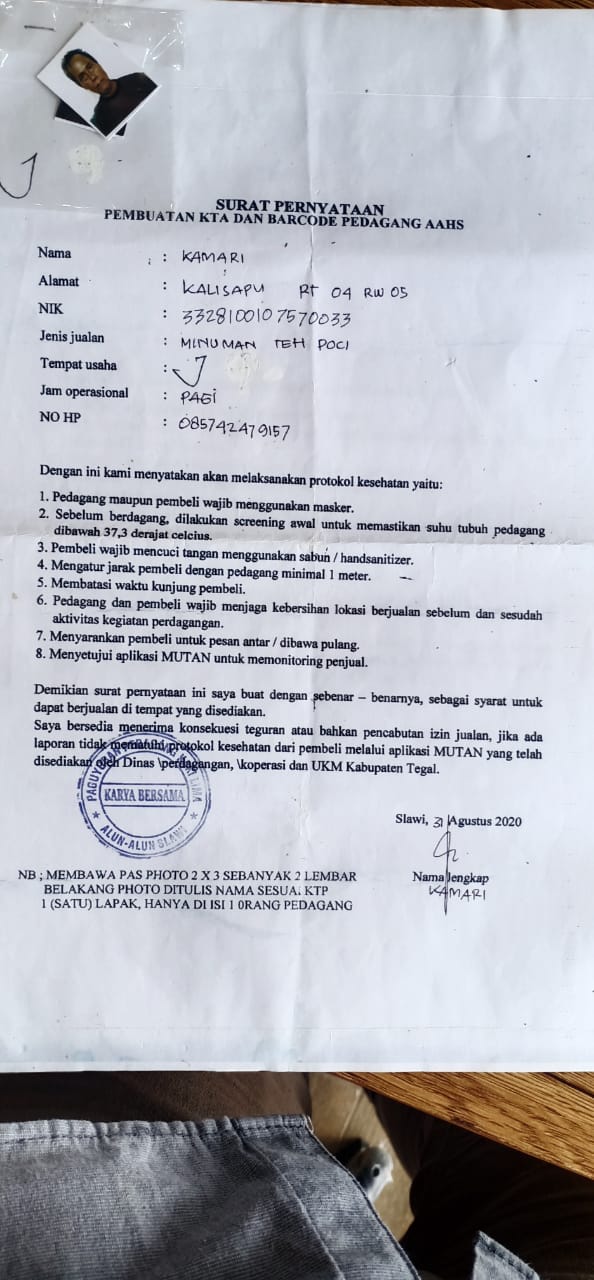 SURAT PERNYATAAN
PEMBUATAN KTA DAN BARCODE PEDAGANG AAHS
Nama : KAMARI
Alamat : KALISAPU RT 04 RW 05
NIK : 3328100107570033
Jenis jualan : MINUMAN TEH POCI
Tempat usaha :
Jam operasional : PAGI
NO HP : 085742479157
Dengan ini kami menyatakan akan melaksanakan protokol kesehatan yaitu:
1. Pedagang maupun pembeli wajib menggunakan masker.
2. Sebelum berdagang, dilakukan screening awal untuk memastikan suhu tubuh pedagang
dibawah 37,3 derajat celcius.
3. Pembeli wajib mencuci tangan menggunakan sabun / handsanitizer.
4. Mengatur jarak pembeli dengan pedagang minimal 1 meter.
5. Membatasi waktu kunjung pembeli.
6. Pedagang dan pembeli wajib menjaga kebersihan lokasi berjualan sebelum dan sesudah
aktivitas kegiatan perdagangan.
7. Menyarankan pembeli untuk pesan antar / dibawa pulang.
8. Menyetujui aplikasi MUTAN untuk memonitoring penjual.
Demikian surat pernyataan ini saya buat dengan sebenar – benarnya, sebagai syarat untuk
dapat berjualan di tempat yang disediakan.
Saya bersedia menerima konsekuesi teguran atau bahkan pencabutan izin jualan, jika ada
laporan tidak mematuhi protokol kesehatan dari pembeli melalui aplikasi MUTAN yang telah
disediakan oleh Dinas \perdagangan, \koperasi dan UKM Kabupaten Tegal.
KARYA BERSAMA
ALUN-ALUN SLAWI
Slawi, 31 Agustus 2020
Nama lengkap
KAMARI
NB ; MEMBAWA PAS PHOTO 2 X 3 SEBANYAK 2 LEMBAR
BELAKANG PHOTO DITULIS NAMA SESUAI KTP
1 (SATU) LAPAK, HANYA DI ISI 1 0RANG PEDAGANG